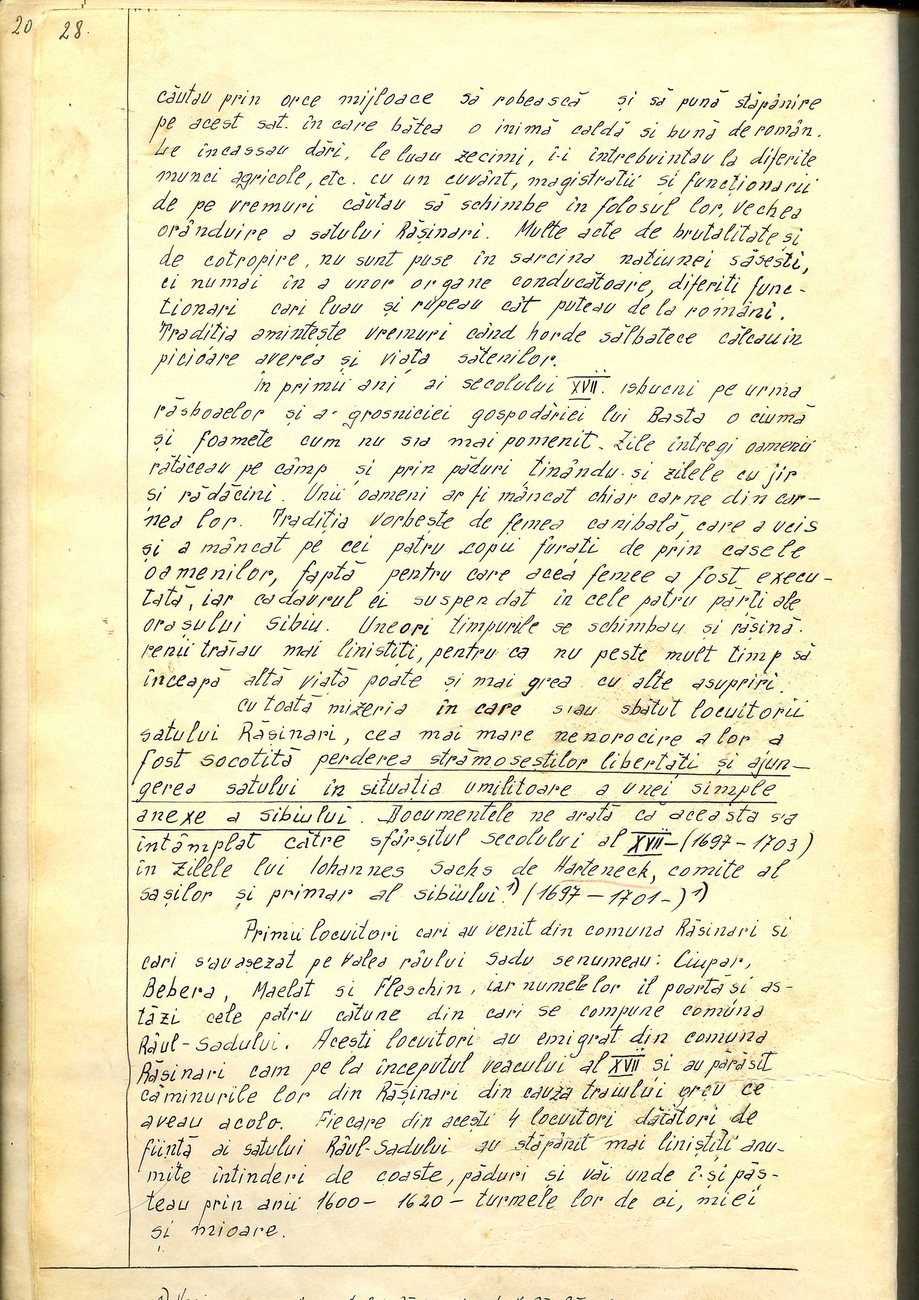 20 28.
căutau prin orce mijloace să robească și să pună stăpânire
pe acest sat. în care bătea o inimă caldă si bună de român.
Le încassau dări, le luau zecimi, î-i întrebuintau la diferite
munci agricole, etc. cu un cuvânt, magistratii si funcționarii
de pe vremuri căutau să schimbe în folosul lor, vechea
orânduire a satului Rășinari. Multe acte de brutalitate și
de cotropire, nu sunt puse în sarcina natiunei săsești,
ci numai în a unor organe conducătoare, diferiti func-
tionari cari luau și rupeau cât puteau de la români.
Traditia amintește vremuri când horde sălbatece călcau in
picioare averea și viata sătenilor.
în primii ani ai secolului XVII. isbucni pe urma
răsboaelor și a grosniciei gospodăriei lui Basta o ciumă
și foamete cum nu s-a mai pomenit. Zile întregi oamenii
rătăceau pe câmp și prin păduri tinându-si zilele cu jir
si rădăcini. Unii oameni ar fi mâncat chiar carne din car-
nea lor. Traditia vorbește de femea canibală, care a ucis
și a mâncat pe cei patru copii furați de prin casele
oamenilor, faptă pentru care acea femee a fost execu-
tată, iar cadavrul ei suspendat în cele patru părti ale
orasului Sibiu. Uneori timpurile se schimbau și răsină-
renii trăiau mai linistiți, pentru ca nu peste mult timp să
înceapă altă viată poate și mai grea cu alte asupriri.
cu toată mizeria în care s-au sbătut locuitorii
satului Rășinari, cea mai mare nenorocire a lor a
fost socotită perderea strămosestilor libertăți și ajun-
gerea satului în situatia umilitoare a unei simple
anexe a sibiului. Documentele ne arată că aceasta s-a
întâmplat către sfârsitul secolului al XVII-(1697-1703)
in zilele lui Iohannes Sachs de Harteneck, comite al
sașilor și primar al sibiului.1) (1697-1701-)1)
Primii locuitori cari au venit din comuna Rășinari si
cari s'au asezat pe Valea râului Sadu se numeau: Ciupar,
Bebera, Maelat si Fleschin, iar numele lor îl poartă si as-
tăzi cele patru cătune din cari se compune comuna
Râul-Sadului. Acesti locuitori au emigrat din comuna
Rășinari cam pe la începutul veacului al XVII si au părăsit
căminurile lor din Rășinari din cauza traiului greu ce
aveau acolo. Fiecare din acești 4 locuitori dătători de
ființă ai satului Râul-Sadului au stăpânit mai liniștiți anu-
mite întinderi de coaste, păduri si văi unde î-și păș-
teau prin anii 1600- 1620- turmele lor de oi, miei
și mioare.